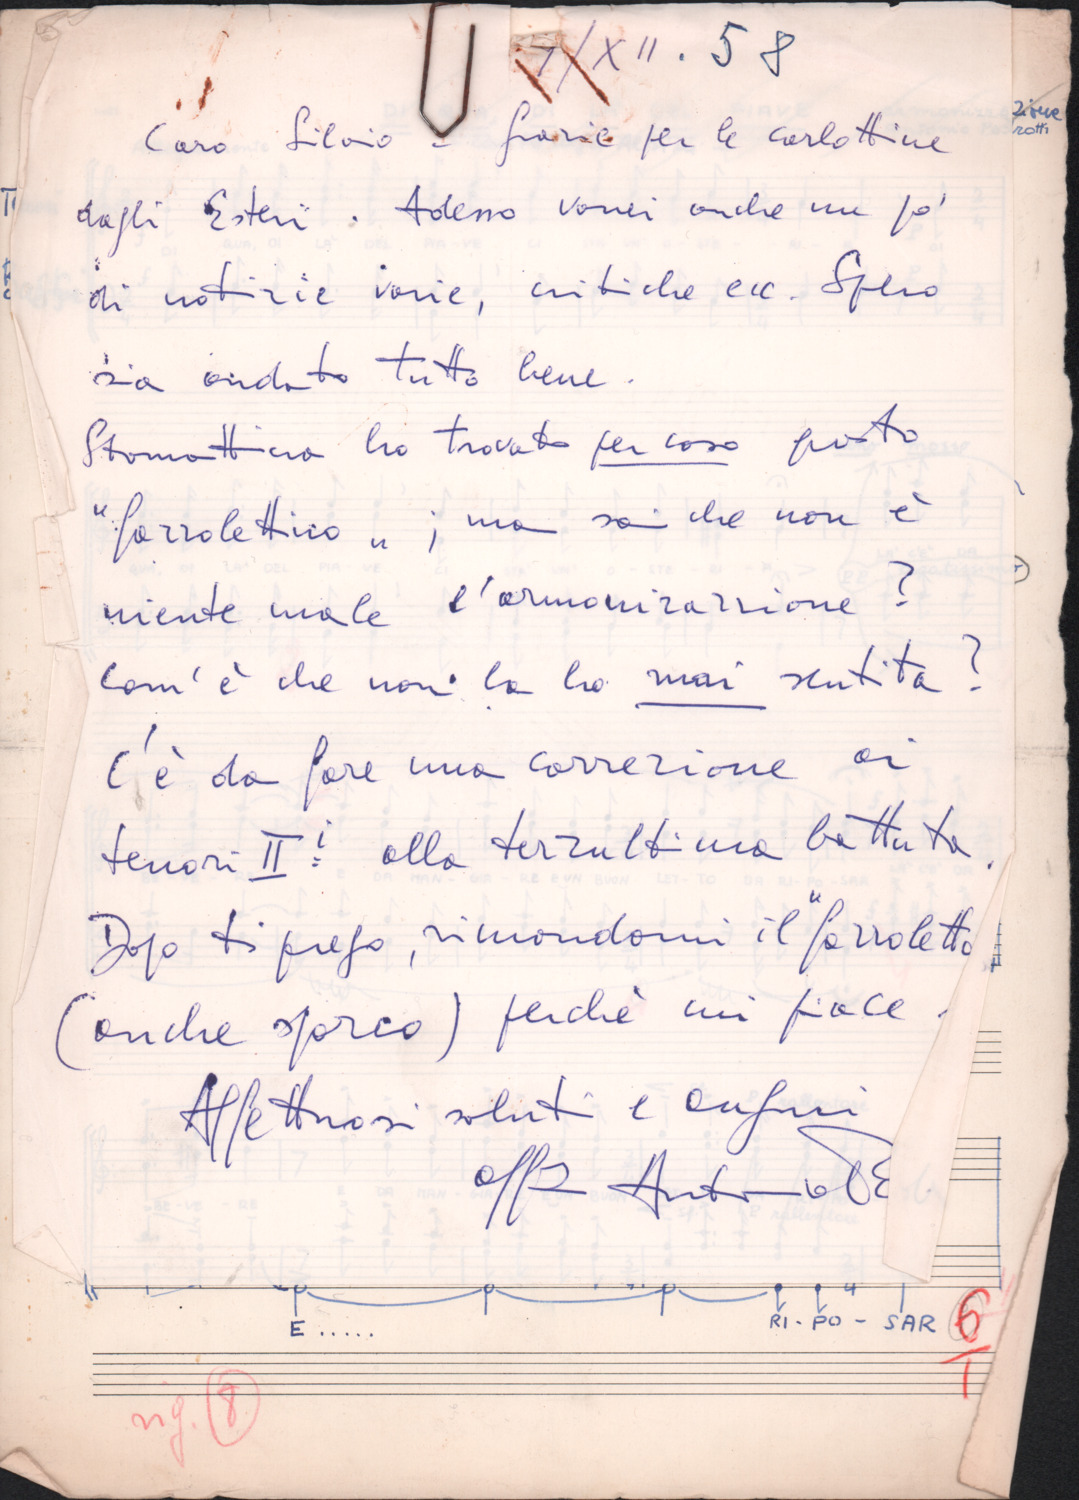 7/XII.58
Caro Silvio = Grazie per le cartoline
dagli "Esteri". Adesso vorrei anche un po'
di notizie varie, critiche ecc. Spero
sia andato tutto bene.
Stamattina ho trovato per caso questo
"fazzolettino"; ma sai che non è
niente male l'armonizzazione?
Com'è che non la ho mai sentita?
C'è da fare una correzione ai
tenori IIi alla terzultima battuta.
Dopo ti prego, rimandami il "fazzoletto
(anche sporco) perchè mi piace.
Affettuosi saluti e auguri
aff Antonio
zione
rotti
E.....
RI-PO-SAR
6
1
rig. 8